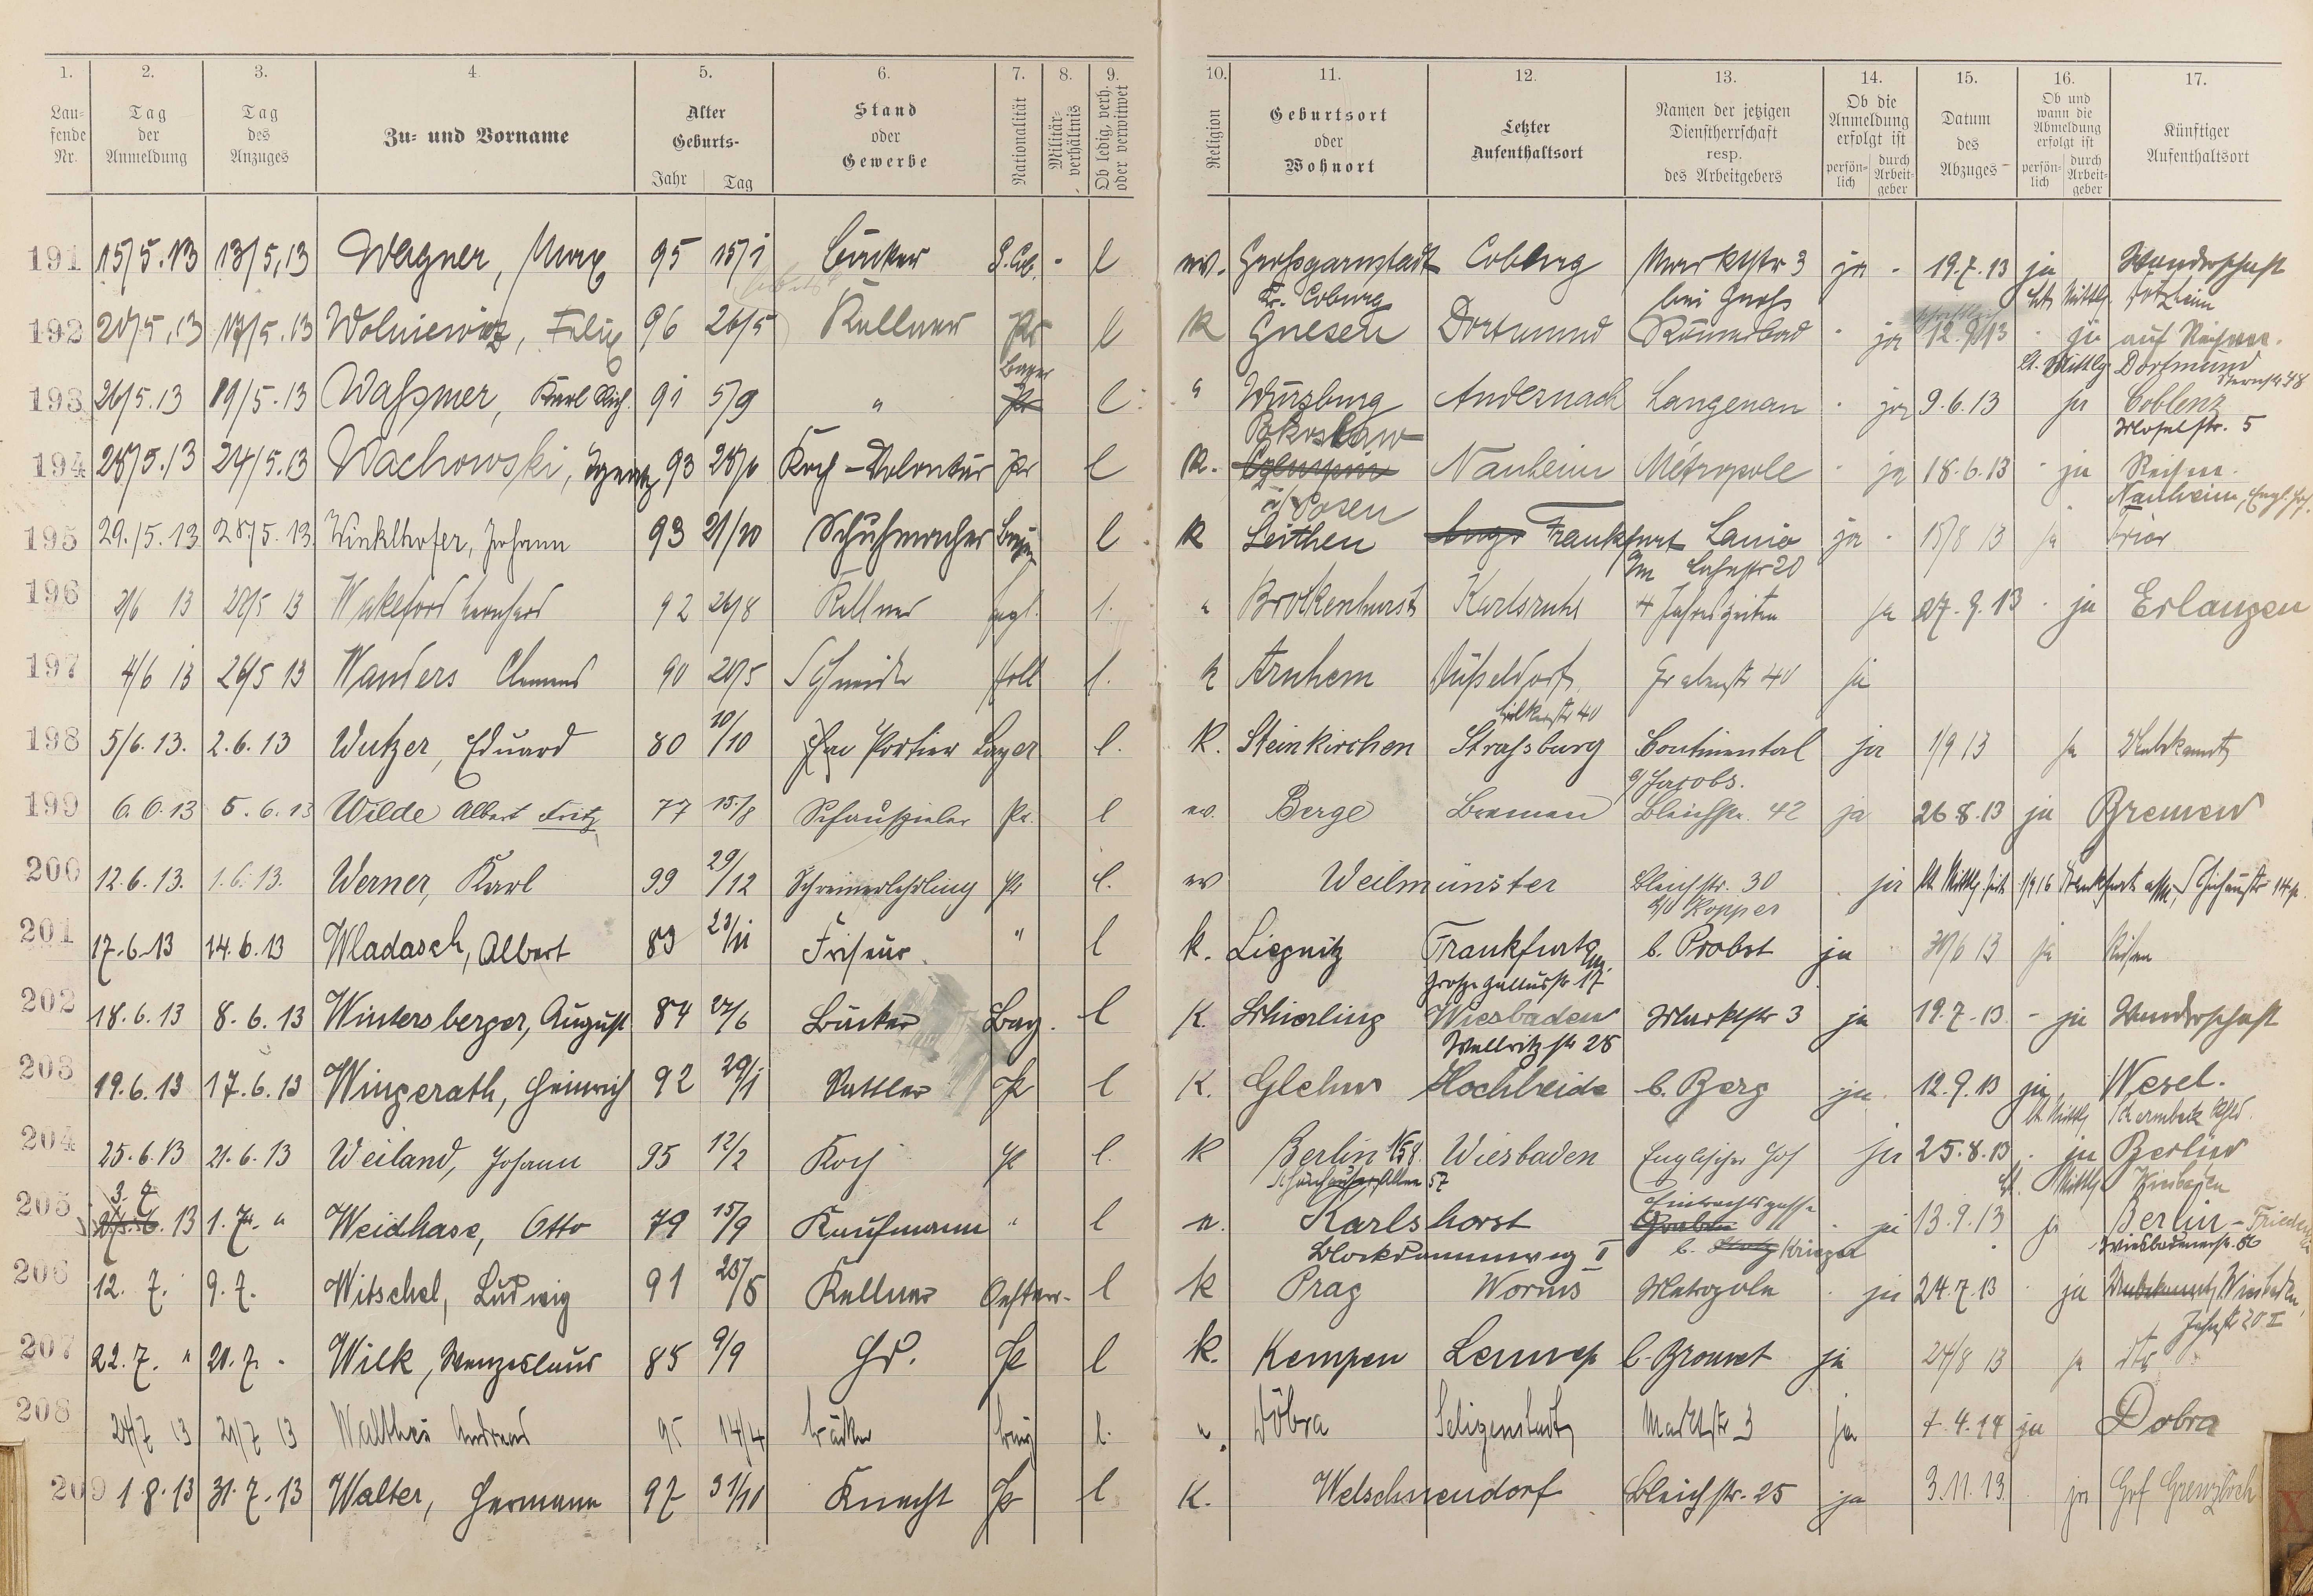 1. 2. 3. 4. 5. 6. 7. 8. 9. 10. 11. 12. 13. 14. 15. 16. 17.
Lau-
fende
Nr.
Tag
der
Anmeldung
Tag
des
Anzuges
Zu- und Vorname
Alter
Geburts-
Jahr Tag
Stand
oder
Gewerbe
Nationalität
Militär-
verhältnis
Ob ledig, verh.
oder verwitwet
Religion
Geburtsort
oder
Wohnort
Letzter
Aufenthaltsort
Namen der jetzigen
Dienstherrschaft
resp.
des Arbeitgebers
Ob die
Anmeldung
erfolgt ist
persön-
lich
durch
Arbeit-
geber
Datum
des
Abzuges
Ob und
wann die
Abmeldung
erfolgt ist
persön-
lich
durch
Arbeit-
geber
Künftiger
Aufenthaltsort
191 15/5.13 13/5.13 Wagner, Max 95 15/1 Bäcker l ev. Großgarnstadt Coburg Marktstr 3 ja - 19.7.13 ja Wanderschaft
Kr. Coburg bei Groß Dotzheim
192 20/5.13 17/5.13 Wolniewicz, Felix 96 26/5 Kellner Pr l K Gnesen Dortmund Römerbad - ja 12.9.13 - ja auf Reisen.
lt. Mittlg Dortmund
Bayer
193 26/5.13 19/5.13 Waßmer, Karl Rich. 91 5/9 " Pr l " Würzburg Andernach Langenau - ja 9.6.13 ja Coblenz
Moselstr. 5
Pokrslaw
194 28/5.13 24/5.13 Wachowski, Ignatz 93 Koch-Volontär Pr l K. Nauheim Métropole - ja 18.6.13 - ja Reisen.
Posen Nauheim, Engl. Hof.
195 29./5.13 28./5.13 Winklhofer, Johann 93 21/10 Schuhmacher Bayer l K Leithen Frankfurt Lanio ja - 15/8 13 ja Trier
a/m Lahnstr 20
196 2/6 13 28/5 13 Wakeford Bernhard 92 26/8 Kellner engl. l. " Brokenhurst Karlsruhe 4 Jahreszeiten ja 27.9.13 - ja Erlangen
197 4/6 13 26/5 13 Wanders Clemens 90 20/5 Schneider Holl l. K Arnhem Düsseldorf Grabenstr 40 ja
198 5/6.13. 2.6.13 Wutzer, Eduard 80 10/10 Portier Bayer l. K. Steinkirchen Straßburg Continental ja 1/9 13 ja Unbekannt
b/Jacobs.
199 6.6.13 5.6.13 Wilde Albert Fritz 77 15./8 Schauspieler Pr. l ev. Berge Bremen Bleichstr. 42 ja 26.8.13 ja Bremen
200 12.6.13. 1.6.13. Werner, Karl 99 29/12 Schreinerlehrling Pr l. ev Weilmünster Bleichstr. 30 - ja lt Mittlg. 1/9 16 Frankfurt a/M, 14 p.
b/ Kopper
201 17.6.13 14.6.13 Wladasch, Albert 83 23/11 Friseur " l k. Liegnitz Frankfurt a/m. b. Probst ja 30/6 13 ja Reisen
Große Gallusstr. 17
202 18.6.13 8.6.13 Wintersberger, August 84 27/6 Bäcker Bay. l K. Schierling Wiesbaden Marktstr 3 ja 19.7.13 - ja Wanderschaft
Wellritzstr 28
203 19.6.13 17.6.13 Wingerath, Heinrich 92 29/1 Sattler Pr l K. Glehn Hochheide b. Berg ja 12.9.13 ja Wesel.
lt. Mittlg
204 25.6.13 21.6.13 Weiland, Johann 95 12/2 Koch Pr l. K Berlin N58 Wiesbaden Englischer Hof ja 25.8.13 - ja Berlin
Schönhauser Allee 57 lt. Mittlg Wiesbaden
3.7
205 13 1.7. " Weidhase, Otto 79 15/9 Kaufmann " l Karlshorst - ja 13.9.13 ja Berlin - Friedenau
Blockdammweg I b. Krieger Wiesbadenerstr. 86
206 12.7. 9.7. Witschel, Ludwig 91 Kellner Oester. l k Prag Worms Metropole - ja 24.7.13 - ja Unbekannt Wiesbaden,
Jahnstr 20 II
207 22.7. " 21.7. " Wilk, Wenzeslaus 85 9/9 Pr l k. Kempen Lennep b. Brouvet ja 24/8 13 ja
208 24/7 13 21/7 13 Walther Andreas 95 14/4 Bäcker l. Döbra Seligenstadt Marktstr 3 ja 7.4.14 ja Dobra
209 1.8.13 31.7.13 Walter, Hermann 97 31/10 Knecht Pr l K. Welschneudorf Bleichstr. 25 ja 3.11.13. ja Hof